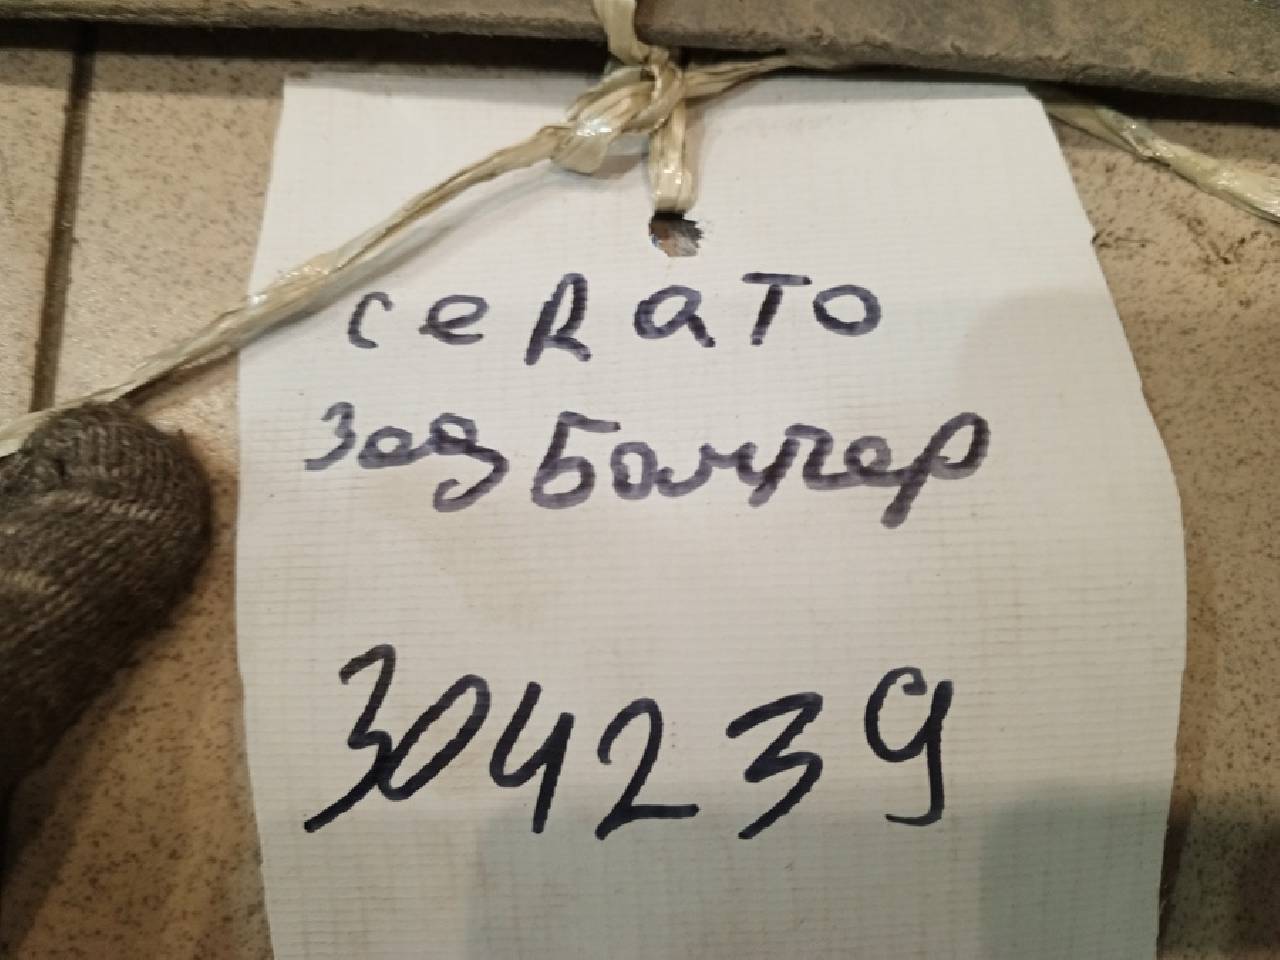 ceRaTo
Зад Бампер
304239